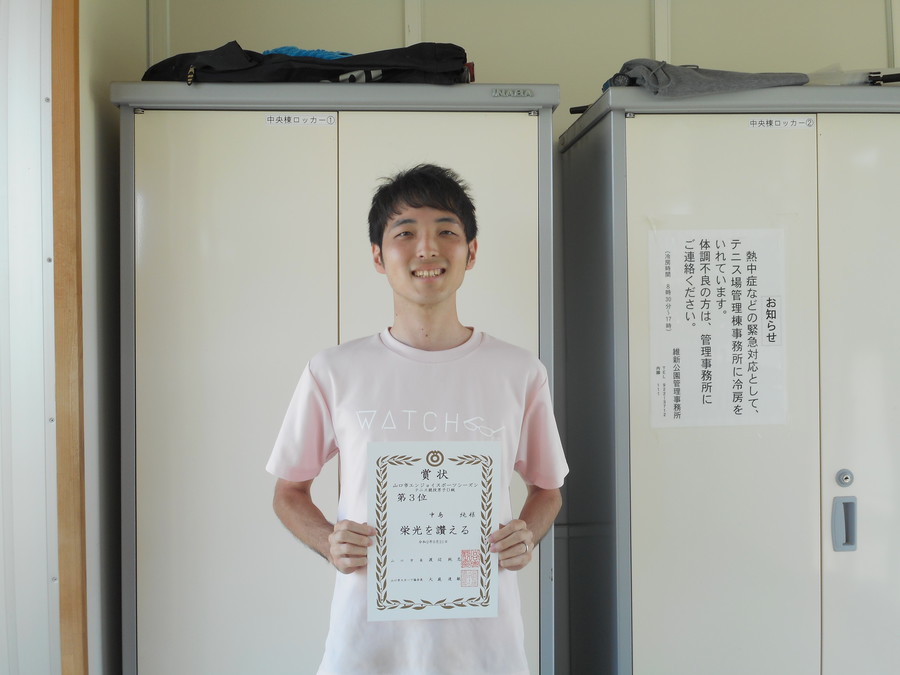 中央棟ロッカー①
中央棟ロッカー②
WATCH
賞状
山口市エンジョイスポーツシーズン
テニス競技男子D級
第3位
栄光を讃える
お知らせ
熱中症などの緊急対応として、
テニス場管理棟事務所に冷房を
いれています。
体調不良の方は、管理事務所に
ご連絡ください。
（冷房時間 8時30分～17時）
維新公園管理事務所